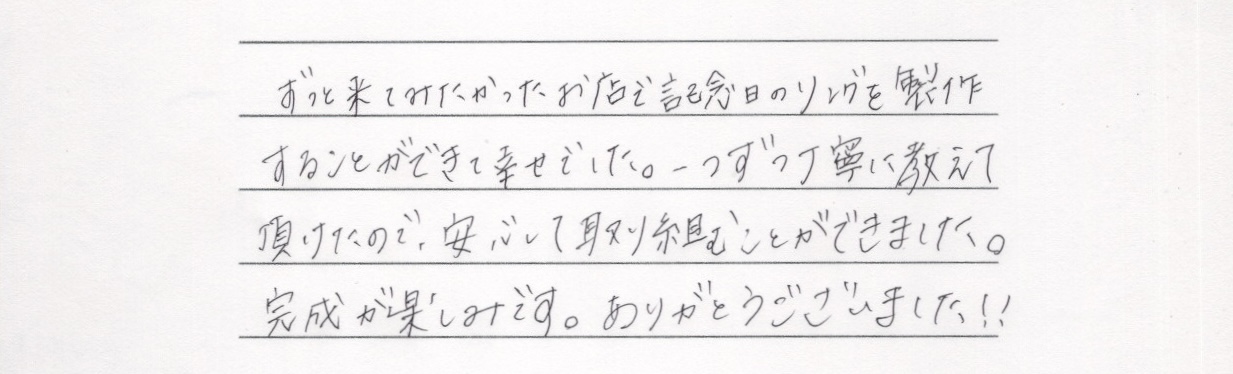 ずっと来てみたかったお店で記念日のリングを製作
することができて幸せでした。一つずつ丁寧に教えて
頂けたので、安心して取り組むことができました。
完成が楽しみです。ありがとうございました!!